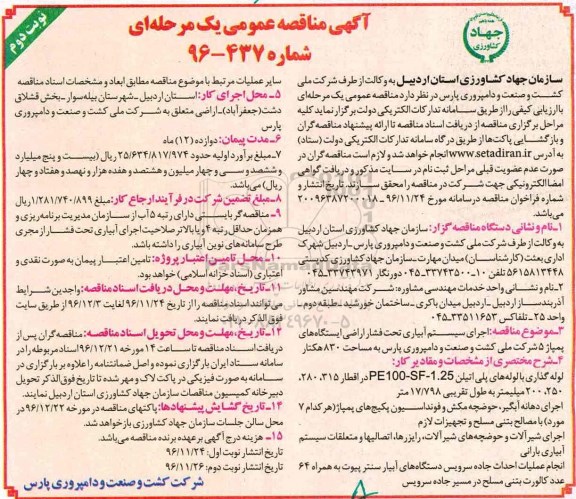 نوبت دوم
جهاد
کشاورزی
آگهی مناقصه عمومی یک مرحله‌ای
شماره ۴۳۷-۹۶
سازمان جهاد کشاورزی استان اردبیل به وکالت از طرف شرکت ملی
کشت و صنعت و دامپروری پارس در نظر دارد مناقصه عمومی یک مرحله‌ای
با ارزیابی کیفی را از طریق سامانه تدارکات الکترونیکی دولت برگزار نماید کلیه
مراحل برگزاری مناقصه از دریافت اسناد مناقصه تا ارائه پیشنهاد مناقصه گران
و بازگشایی پاکت‌ها از طریق درگاه سامانه تدارکات الکترونیکی دولت (ستاد)
به آدرس www.setadiran.ir انجام خواهد شد و لازم است مناقصه گران در
صورت عدم عضویت قبلی مراحل ثبت نام در سایت مذکور و دریافت گواهی
امضا الکترونیکی جهت شرکت در مناقصه را محقق سازند. تاریخ انتشار و
شماره فراخوان مناقصه در سامانه مورخ ۹۶/۱۱/۲۴
می‌باشد.
۱-نام و نشانی دستگاه مناقصه گزار: سازمان جهاد کشاورزی استان اردبیل
به وکالت از طرف شرکت ملی کشت و صنعت و دامپروری پارس-اردبیل شهرک
اداری بعثت (کارشناسان) میدان مهارت-سازمان جهاد کشاورزی کدپستی
۵۶۱۵۸۱۳۴۴۸ تلفن ۱۰-۳۳۷۴۳۵۰۰-۰۴۵ دورنگار ۳۳۷۴۳۹۷۱-۰۴۵
۲-نام و نشانی واحد خدمات مهندسی مشاوره: شرکت مهندسین مشاور
آذربندساز اردبیل-اردبیل میدان باکری-ساختمان خورشید-طبقه دوم-
واحد ۲۵-تلفاکس ۳۳۵۱۱۶۵۳-۰۴۵
۳-موضوع مناقصه: اجرای سیستم آبیاری تحت فشار اراضی ایستگاه‌های
پمپاژ ۵ شرکت ملی کشت و صنعت و دامپروری پارس به مساحت ۸۳۰ هکتار
۴-شرح مختصری از مشخصات و مقادیر کار:
لوله گذاری با لوله‌های پلی اتیلن PE100-SF-1.25 در اقطار ۳۱۵، ۲۸۰،
۲۵۰، ۲۰۰ میلیمتر به طول تقریبی ۱۷/۷۹۸ متر
اجرای دهانه آبگیر، حوضچه مکش و فونداسیون پکیج‌های پمپاژ (هر کدام ۷
مورد) با مصالح بتنی مسلح و تجهیزات لازم
اجرای شیرآلات و حوضچه‌های شیرآلات، رایزرها، اتصالیها و متعلقات سیستم
آبیاری بارانی
انجام عملیات احداث جاده سرویس دستگاه‌های آبیار سنتر پیوت به همراه ۶۴
عدد کالورت بتنی مسلح در مسیر جاده سرویس
سایر عملیات مرتبط با موضوع مناقصه مطابق ابعاد و مشخصات اسناد مناقصه
۵-محل اجرای کار: استان اردبیل-شهرستان بیله‌سوار-بخش قشلاق
دشت (جعفرآباد)-اراضی متعلق به شرکت ملی کشت و صنعت و دامپروری
پارس
۶-مدت پیمان: دوازده (۱۲) ماه
۷-مبلغ برآورد اولیه حدود ۲۵/۶۳۴/۸۱۷/۹۷۴ ریال (بیست و پنج میلیارد
و ششصد و سی و چهار میلیون و هشتصد و هفده هزار و نهصد و هفتاد و چهار
ریال) می‌باشد.
۸-مبلغ تضمین شرکت در فرآیند ارجاع کار: ۱/۲۸۱/۷۴۰/۸۹۹ ریال
۹-مناقصه گر بایستی دارای رتبه ۵ آب از سازمان مدیریت برنامه‌ریزی و
همزمان حداقل رتبه ۴ و یا بالاتر صلاحیت اجرای آبیاری تحت فشار از مجری
طرح سامانه‌های نوین آبیاری را داشته باشد.
۱۰-محل تامین اعتبار پروژه: تامین اعتبار پیمان به صورت نقدی و
اعتباری (اسناد خزانه اسلامی) خواهد بود.
۱۱-تاریخ، مهلت و محل دریافت اسناد مناقصه: واجدین شرایط
می‌توانند اسناد مناقصه را از تاریخ ۹۶/۱۱/۲۴ لغایت ۹۶/۱۲/۳ از طریق سایت
فوق الذکر دریافت نمایند.
۱۲-تاریخ، مهلت و محل تحویل اسناد مناقصه: مناقصه گران پس از
دریافت اسناد مناقصه تا ساعت ۱۴ مورخه ۹۶/۱۲/۲۱ اسناد مربوطه را در
سامانه ستاد ایران بارگزاری نموده و اصل ضمانتنامه را علاوه بر بارگزاری در
سامانه به صورت فیزیکی در پاکت لاک و مهر شده تا تاریخ فوق الذکر تحویل
دبیرخانه کمیسیون مناقصات سازمان جهاد کشاورزی استان اردبیل نمایند.
۱۴-تاریخ گشایش پیشنهادها: پاکتهای مناقصه در مورخه ۹۶/۱۲/۲۲ در
محل سالن جلسات سازمان جهاد کشاورزی بازخواهد شد.
۱۵-هزینه درج آگهی بر عهده برنده مناقصه می‌باشد.
تاریخ انتشار نوبت اول: ۹۶/۱۱/۲۴
تاریخ انتشار نوبت دوم: ۹۶/۱۱/۲۶
شرکت کشت و صنعت و دامپروری پارس